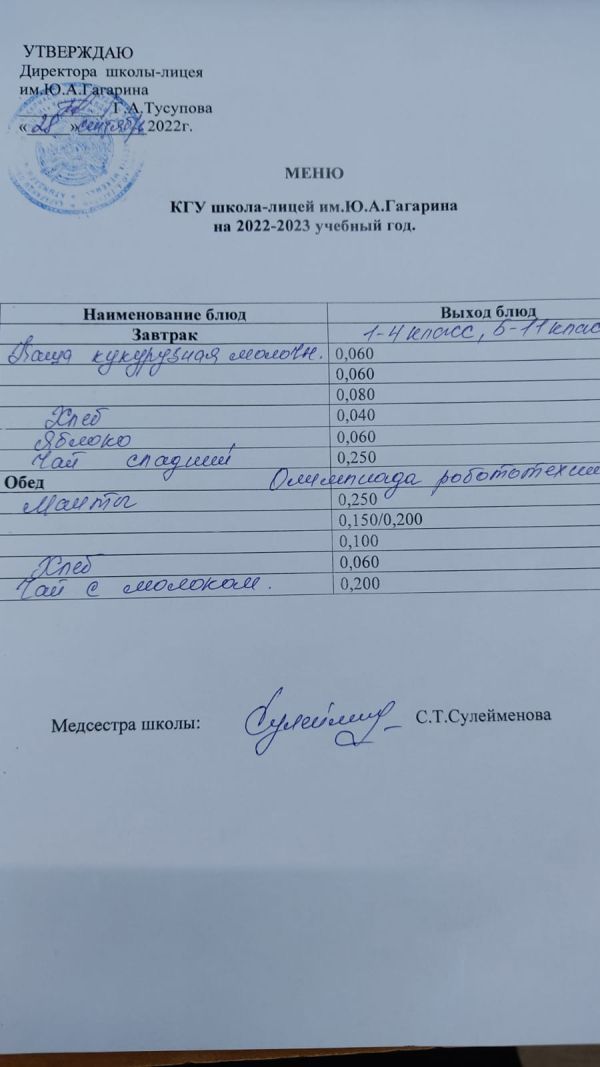 УТВЕРЖДАЮ
Директора школы-лицея
им.Ю.А.Гагарина
Г.А.Тусупова
« 28 » сентябрь 2022г.
МЕНЮ
КГУ школа-лицей им.Ю.А.Гагарина
на 2022-2023 учебный год.
Наименование блюд Выход блюд
Завтрак 1-4 класс, 5-11 клас
Каша кукурузная молочн. 0,060
0,060
0,080
Хлеб 0,040
Яблоко 0,060
Чай сладкий 0,250
Обед Олимпиада робототехни
Манты 0,250
0,150/0,200
0,100
Хлеб 0,060
Чай с молоком. 0,200
Медсестра школы: С.Т.Сулейменова